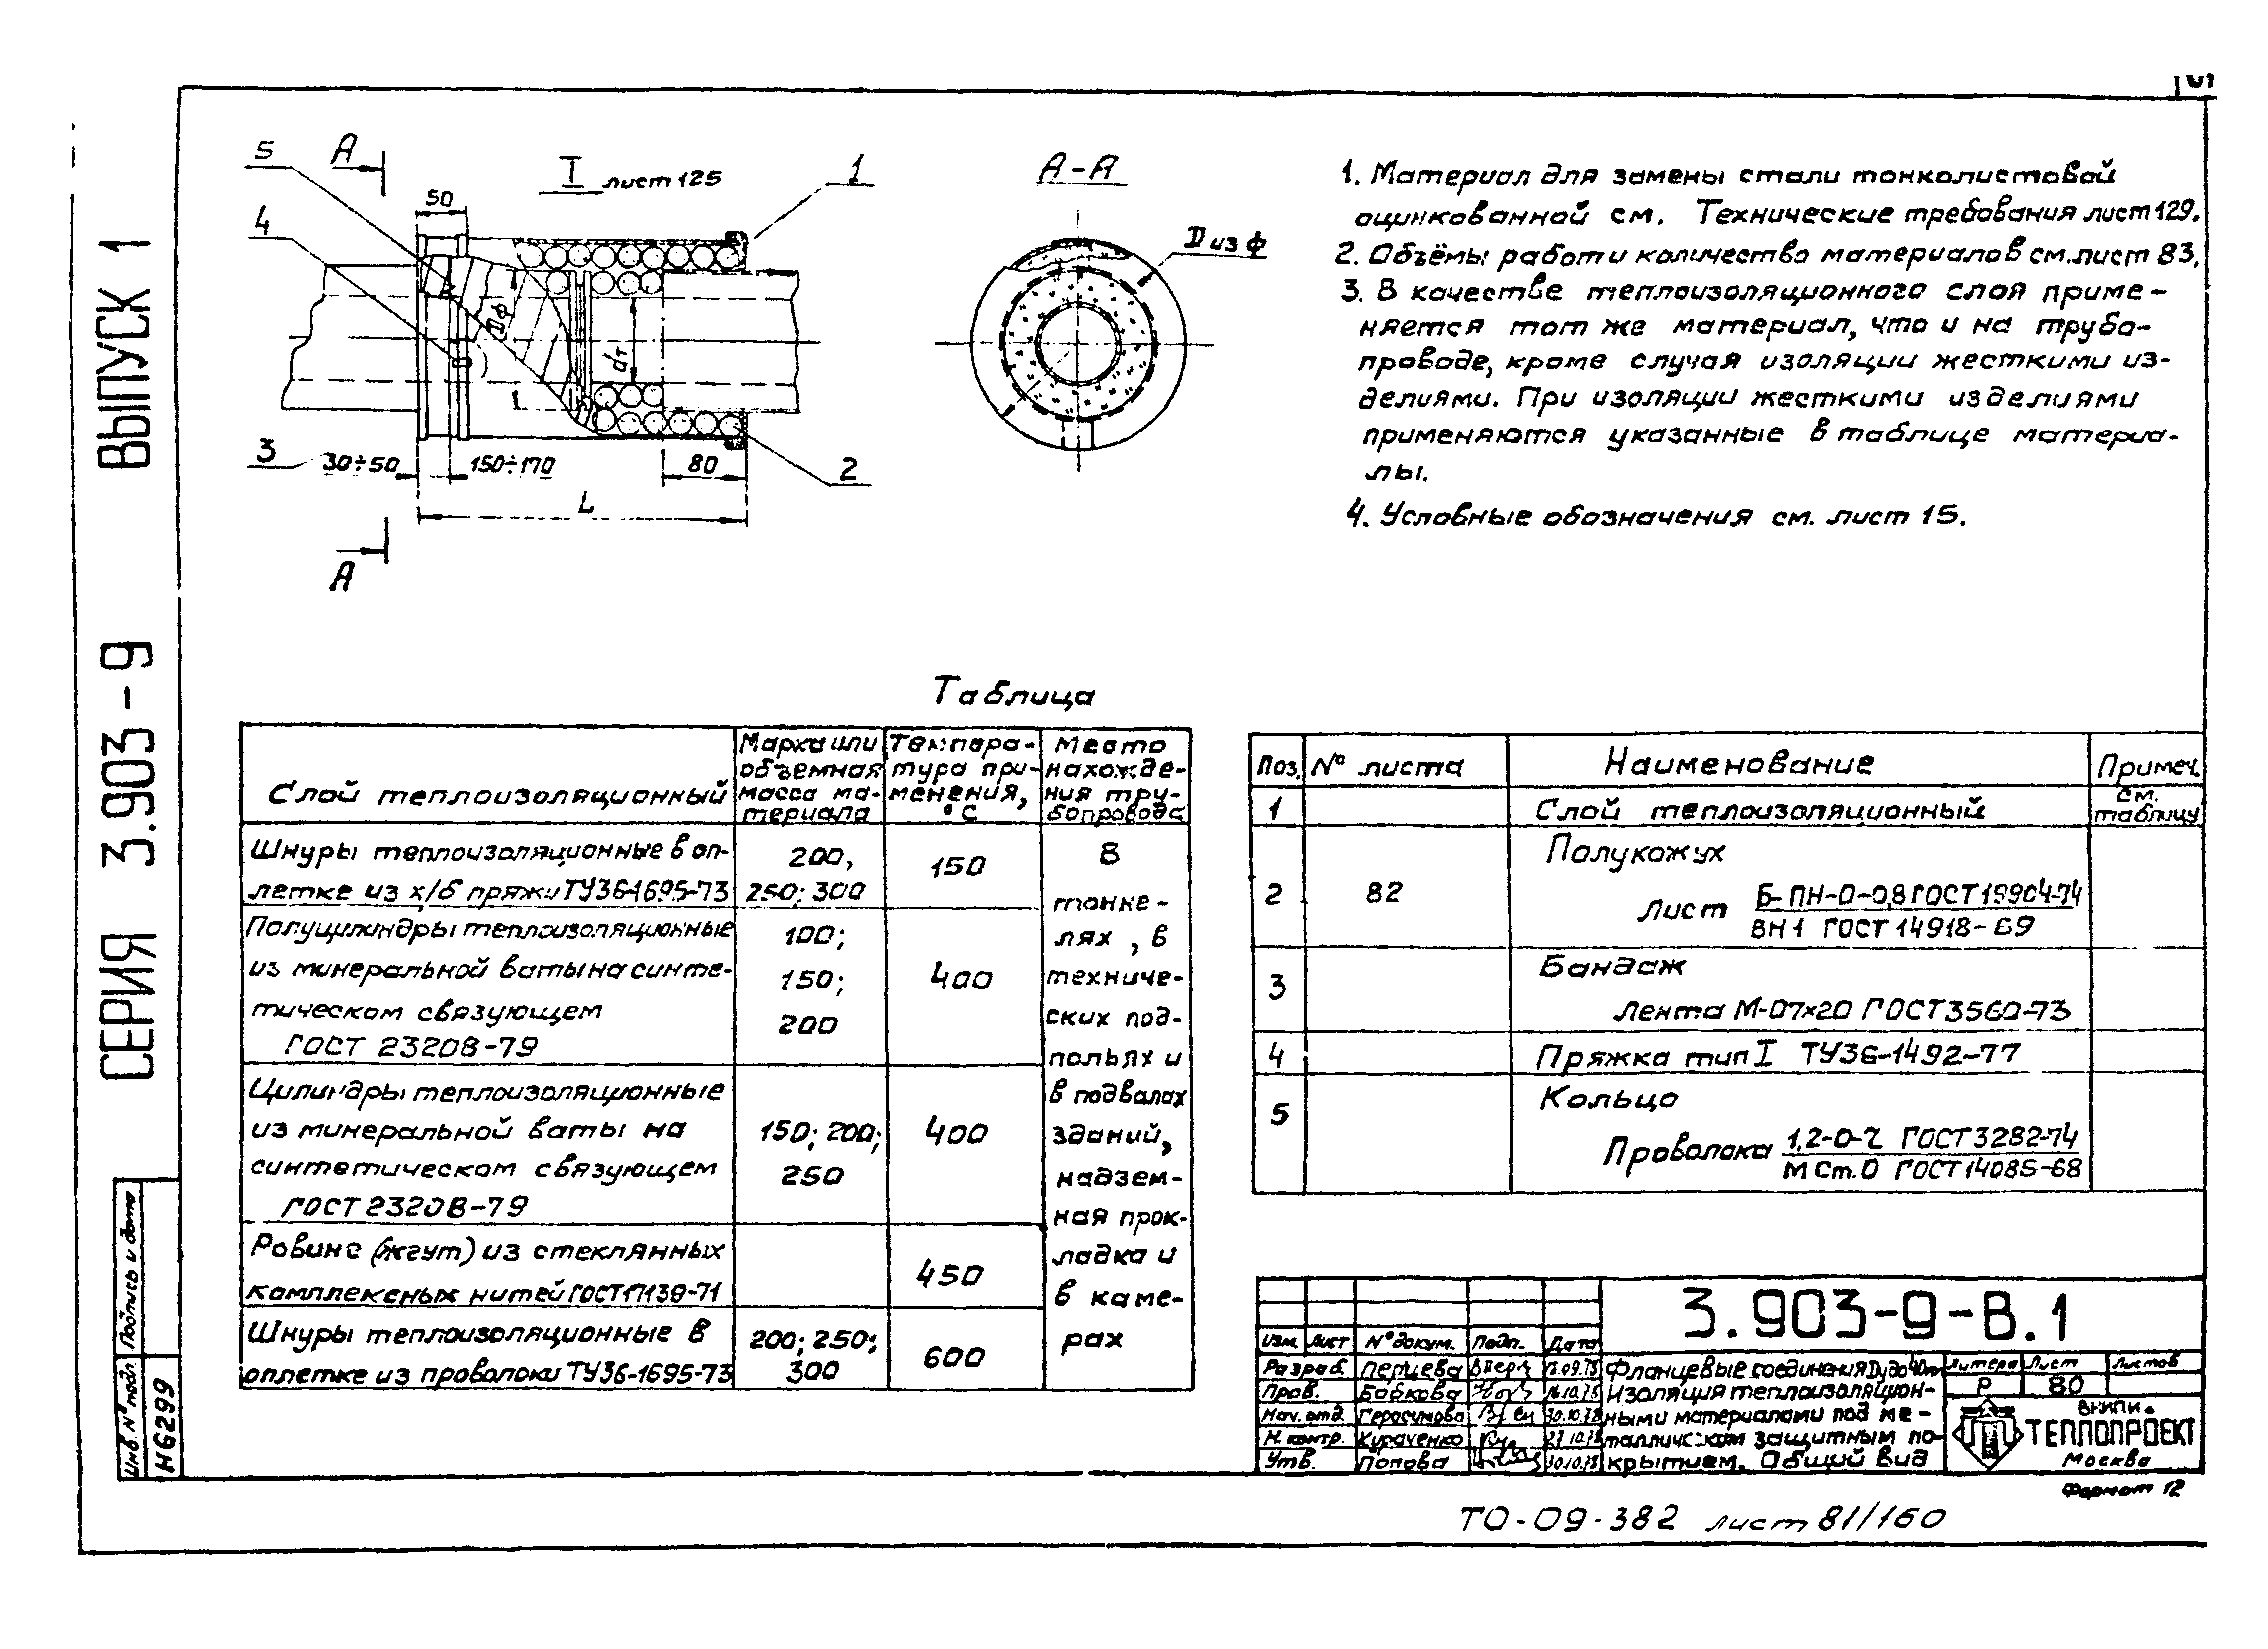 5
А
I лист 125
1
4
50
Dф
dт
3
30÷50
150÷170
80
2
L
А
А-А
D из ф
1. Материал для замены стали тонколистовой
оцинкованной см. Технические требования лист 129.
2. Объёмы работ и количество материалов см. лист 83.
3. В качестве теплоизоляционного слоя приме-
няется тот же материал, что и на трубо-
проводе, кроме случая изоляции жесткими из-
делиями. При изоляции жесткими изделиями
применяются указанные в таблице материа-
лы.
4. Условные обозначения см. лист 15.
СЕРИЯ 3.903-9 ВЫПУСК 1
Таблица
Слой теплоизоляционный
Марка или
объемная
масса ма-
териала
Темпера-
тура при-
менения,
°С
Место
нахожде-
ния тру-
бопровода
Шнуры теплоизоляционные в оп-
летке из х/б пряжи ТУ36-1695-73
200,
250; 300
150
Полуцилиндры теплоизоляционные
из минеральной ваты на синте-
тическом связующем
ГОСТ 23208-79
100;
150;
200
400
Цилиндры теплоизоляционные
из минеральной ваты на
синтетическом связующем
ГОСТ 23208-79
150; 200;
250
400
Ровинг (жгут) из стеклянных
комплексных нитей ГОСТ 17139-71
450
Шнуры теплоизоляционные в
оплетке из проволоки ТУ36-1695-73
200; 250;
300
600
В
тонне-
лях, в
техниче-
ских под-
польях и
в подвалах
зданий,
надзем-
ная прок-
ладка и
в каме-
рах
Поз. № листа Наименование Примеч.
1 Слой теплоизоляционный см.
таблицу
Полукожух
2 82
Лист Б-ПН-О-0,8 ГОСТ 19904-74
ВН1 ГОСТ 14918-69
Бандаж
3
Лента М-07х20 ГОСТ 3560-73
4 Пряжка тип I ТУ36-1492-77
Кольцо
5
Проволока 1,2-О-Ч ГОСТ 3282-74
М Ст.0 ГОСТ 14085-68
3.903-9-В.1
Изм. Лист № докум. Подп. Дата
Разраб. Перцева
Пров. Бобкова
Нач. отд. Герасимова 30.10.78
Н. контр. Кураченко 27.10.78
Утв. Попова 30.10.78
Фланцевые соединения
Изоляция теплоизоляцион-
ными материалами под ме-
таллическим защитным по-
крытием. Общий вид
Литера Лист Листов
Р 80
ВНИПИ
ТЕПЛОПРОЕКТ
Москва
Формат 12
Инв. № подл. Подпись и дата
Н6299
ТО-09-382 лист 81/160